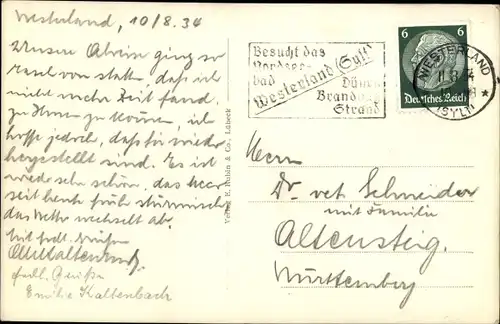 Westerland, 10/8.34
Unsere Abreise ging so
rasch von statten, daß ich
nicht mehr Zeit fand,
zu Ihnen zu kommen, ich
hoffe jedoch, daß Sie wieder
hergestellt sind. Es ist
wieder sehr schön, das Meer
seit heute früh stürmisch,
das Wetter wechselt ab.
Mit frdl. Grüßen
frdl. Grüße
Emilie Kaltenbach
Verlag E. Rubin & Co., Lübeck
Besucht das
Nordsee-
bad
Westerland (Sylt)
Dünen
Brandung
Strand
6 6
Deutsches Reich
WESTERLAND
(SYLT)
Herrn
Dr. vet. Schneider
mit Familie
Altensteig.
Württemberg